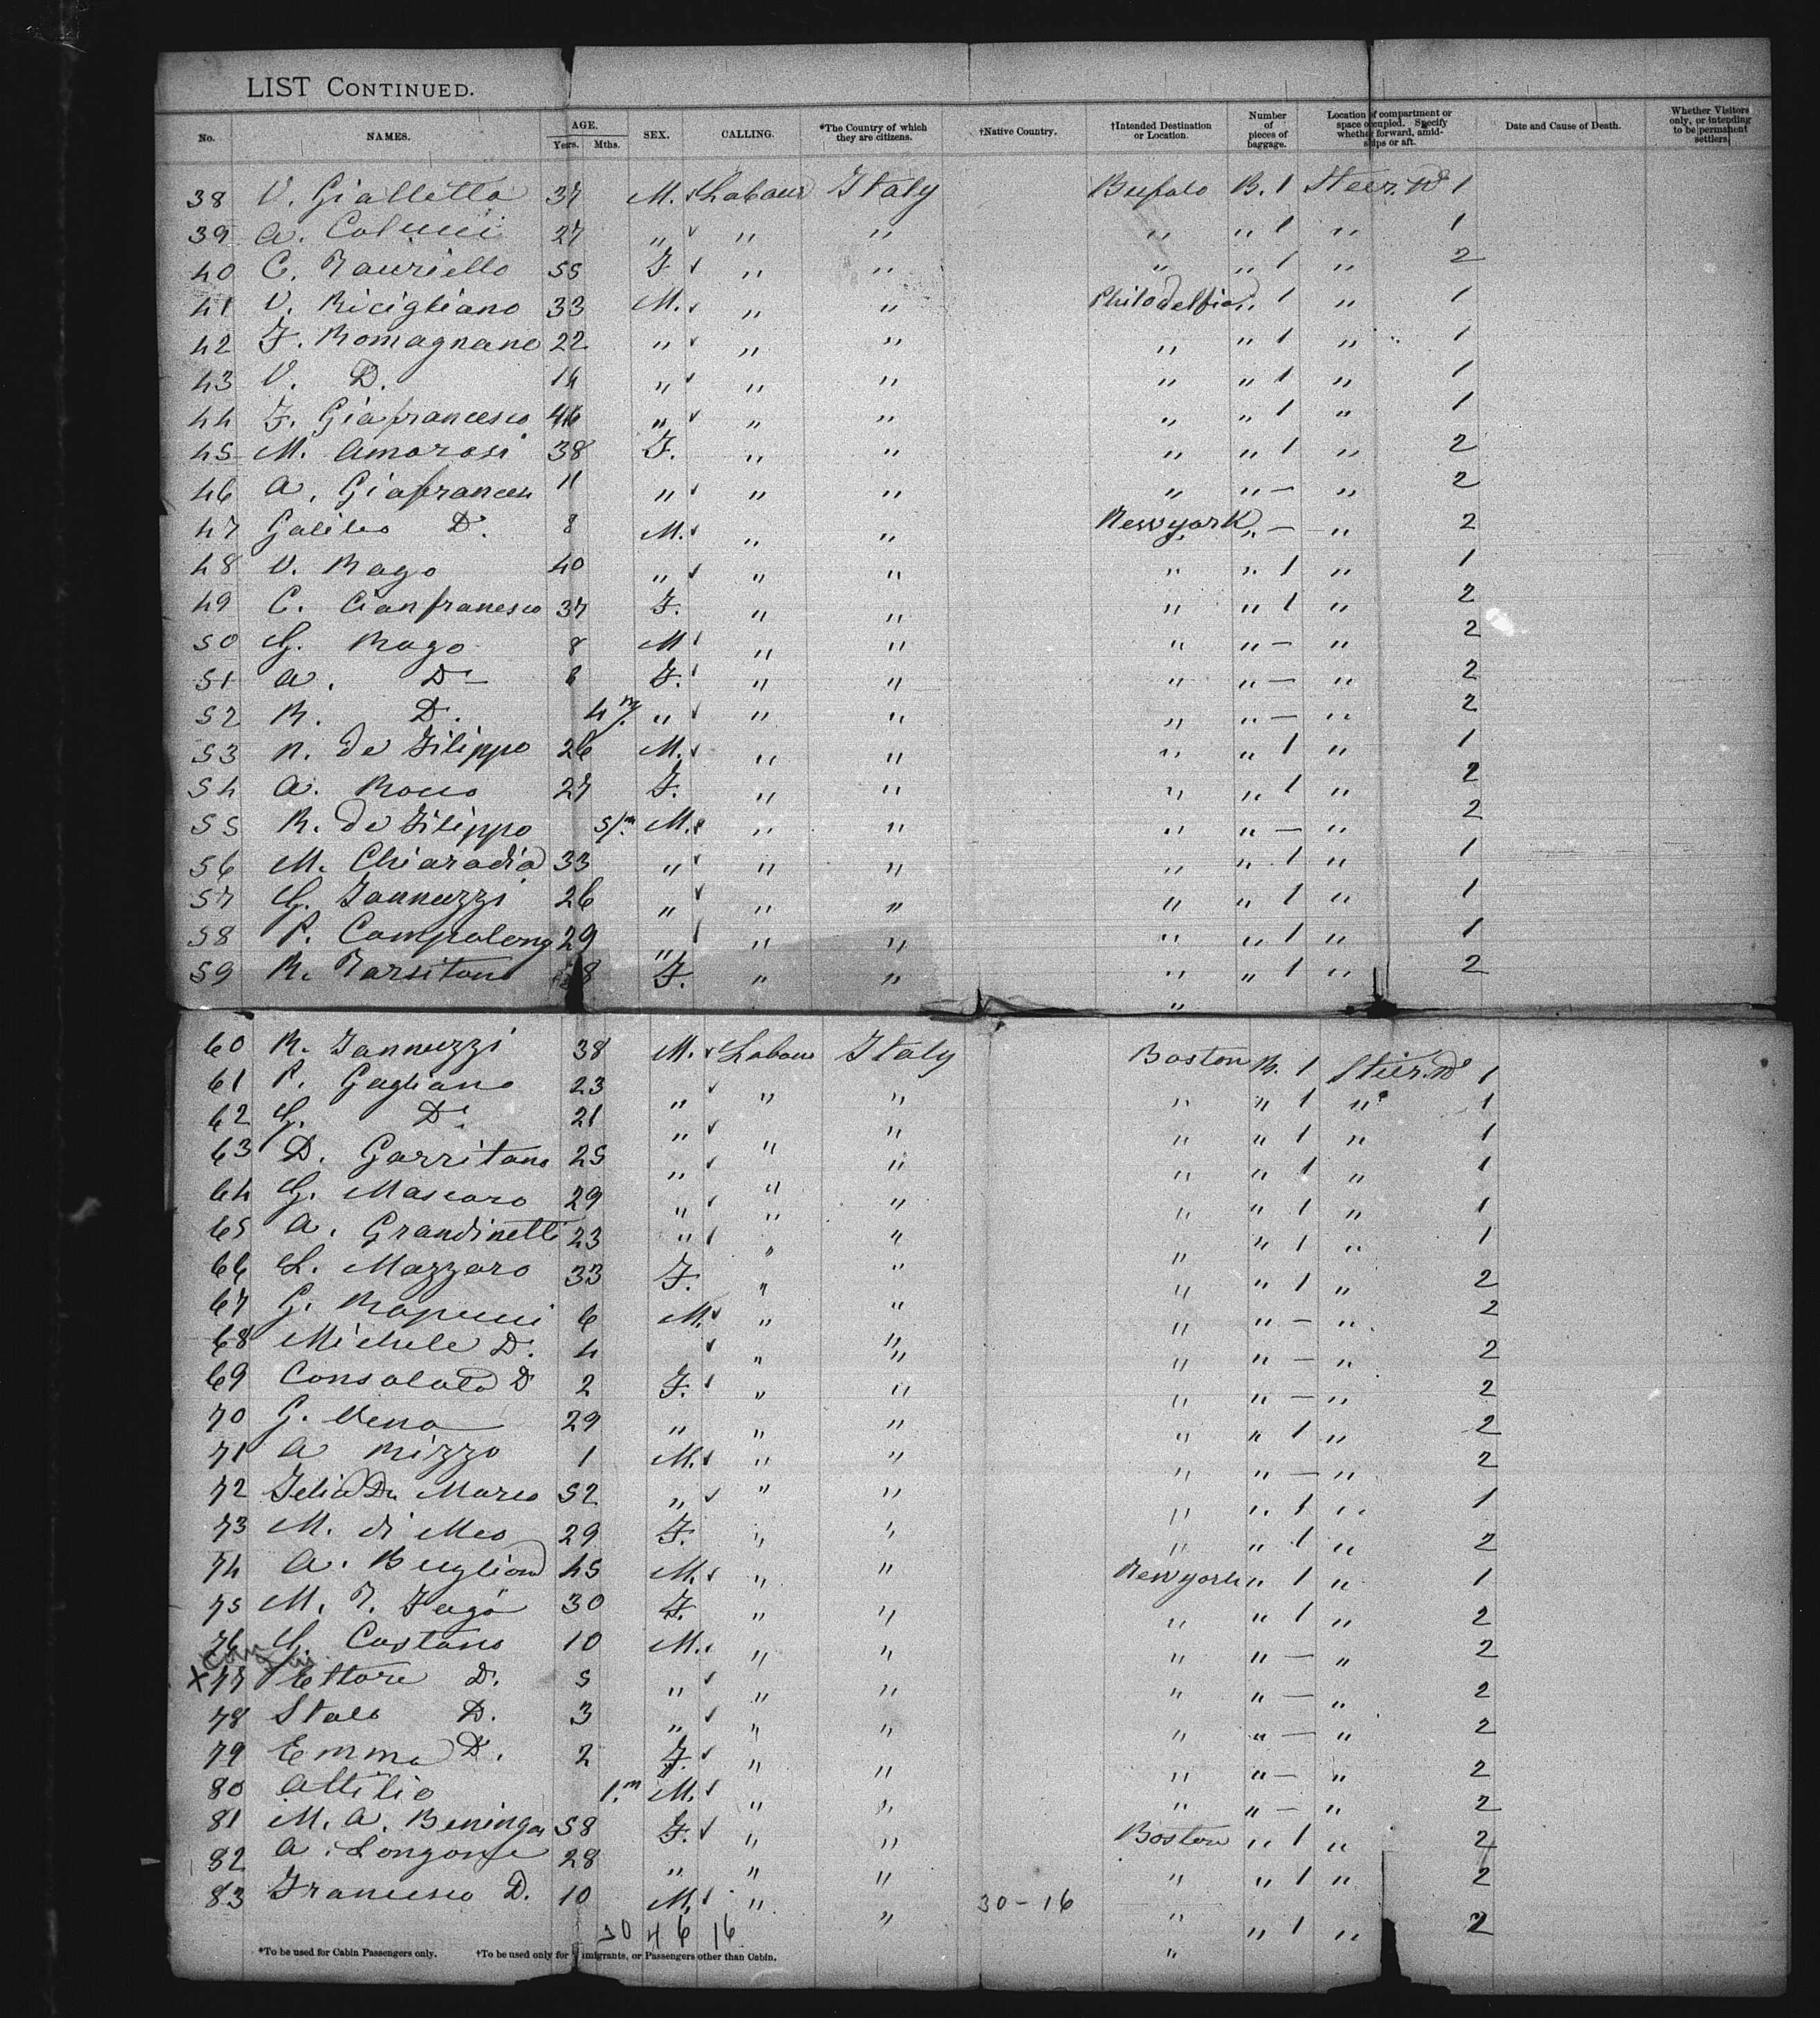 LIST CONTINUED.
No. NAMES. AGE. Years. Mths. SEX. CALLING. *The Country of which they are citizens. †Native Country. †Intended Destination or Location. Number of pieces of baggage. Location of compartment or space occupied. Specify whether forward, amidships or aft. Date and Cause of Death. Whether Visitors only, or intending to be permanent settlers.
38 V. Gialletta 37 M. Labour Italy Bufalo B. 1 Steer. 1
39 A. Colucci 27 " " " " " 1 " 1
40 C. Tauriello 55 F " " " " 1 " 2
41 V. Ricigliano 33 M. " " Philodelfia " 1 " 1
42 F. Romagnano 22 " " " " " 1 " 1
43 V. D. 14 " " " " " 1 " 1
44 F. Giafrancesco 46 " " " " " 1 " 1
45 M. Amorosi 38 F. " " " " 1 " 2
46 A. Giafrancesco 11 " " " " " — " 2
47 Galileo D. 8 M. " " New york " — " 2
48 V. Rago 40 " " " " " 1 " 1
49 C. Cianfranesco 37 F. " " " " 1 " 2
50 G. Rago 8 M " " " " — " 2
51 A. D. 6 F. " " " " — " 2
52 R. D. 4 m. " " " " " — " 2
53 N. de Filippo 26 M. " " " " 1 " 1
54 A. Rocco 27 F. " " " " 1 " 2
55 R. de Filippo 5/m. M. " " " " — " 2
56 M. Chiaradia 33 " " " " " 1 " 1
57 G. Iannuzzi 26 " " " " " 1 " 1
58 P. Campolong 29 " " " " " 1 " 1
59 R. Tarsitano 8 F. " " " " 1 " 2
"
60 R. Iannuzzi 38 M. Labour Italy Boston B. 1 Steer. 1
61 P. Gagliano 23 " " " " " 1 " 1
62 G. D. 21 " " " " " 1 " 1
63 D. Garritano 25 " " " " " 1 " 1
64 G. Mascaro 29 " " " " " 1 " 1
65 A. Grandinetti 23 " " " " " 1 " 1
66 L. Mazzaro 33 F. " " " " 1 " 2
67 G. Rapucci 6 M. " " " " — " 2
68 Michele D. 4 " " " " — " 2
69 Consolata D 2 F. " " " " — " 2
70 G. Vena 29 " " " " " 1 " 2
71 A Rizzo 1 M. " " " " — " 2
72 Felia De Marco 52 " " " " " 1 " 1
73 M. di Meo 29 F. " " " " 1 " 2
74 A. Buglion 45 M. " " New york " 1 " 1
75 M. T. Fagò 30 F. " " " " 1 " 2
76 G. Costano 10 M. " " " " — " 2
x 77 Ettore D. 5 " " " " " — " 2
78 Italo D. 3 " " " " " — " 2
79 Emma D. 2 F. " " " " — " 2
80 Attilio 1.m M. " " " " — " 2
81 M. A. Beninga 58 F. " " Boston " 1 " 2
82 A. Longone 28 " " " " " 1 " 2
83 Francesco D. 10 M. " " 30-16 " " 1 " 2
30 4 6 16 "
*To be used for Cabin Passengers only. †To be used only for Emigrants, or Passengers other than Cabin.